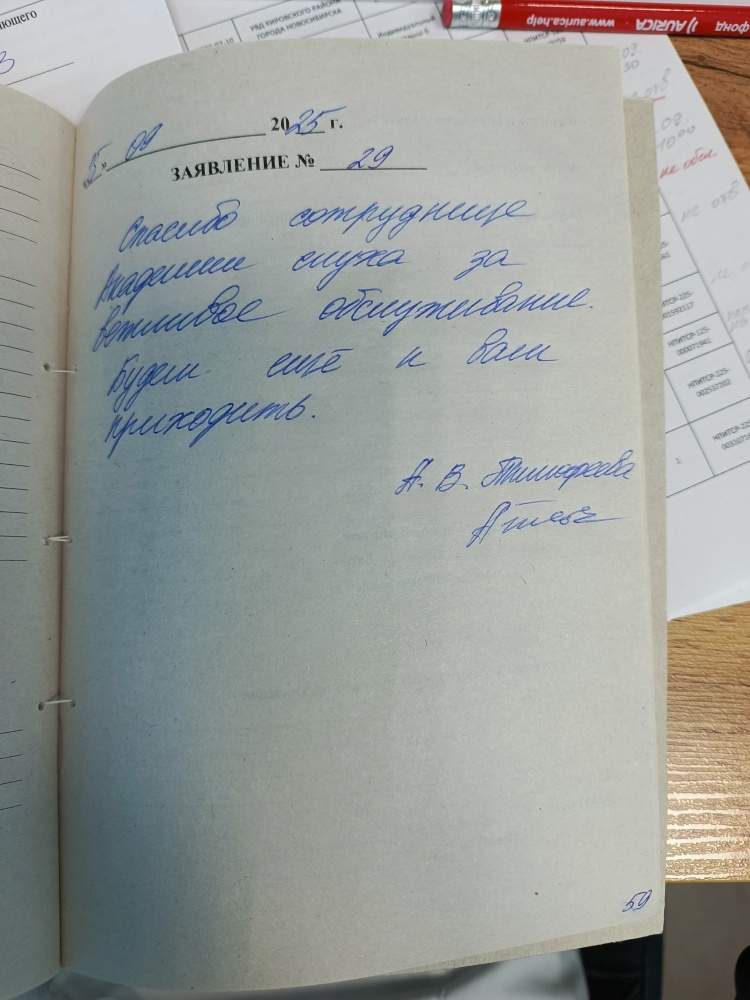 ющего
УВД КИРОВСКОГО РАЙОНА
ГОРОДА НОВОСИБИРСКА
Индивидуальный
фонд AURICA www.aurica.help
09
не обсл.
« 15 » 09 2025 г.
ЗАЯВЛЕНИЕ № 29
Спасибо сотруднице
Академии слуха за
вежливое обслуживание.
Будем ещё к вам
приходить.
А. В. Тимофеева
НПИТСР-225-
НПИТСР-225-
НПИТСР-225-
59